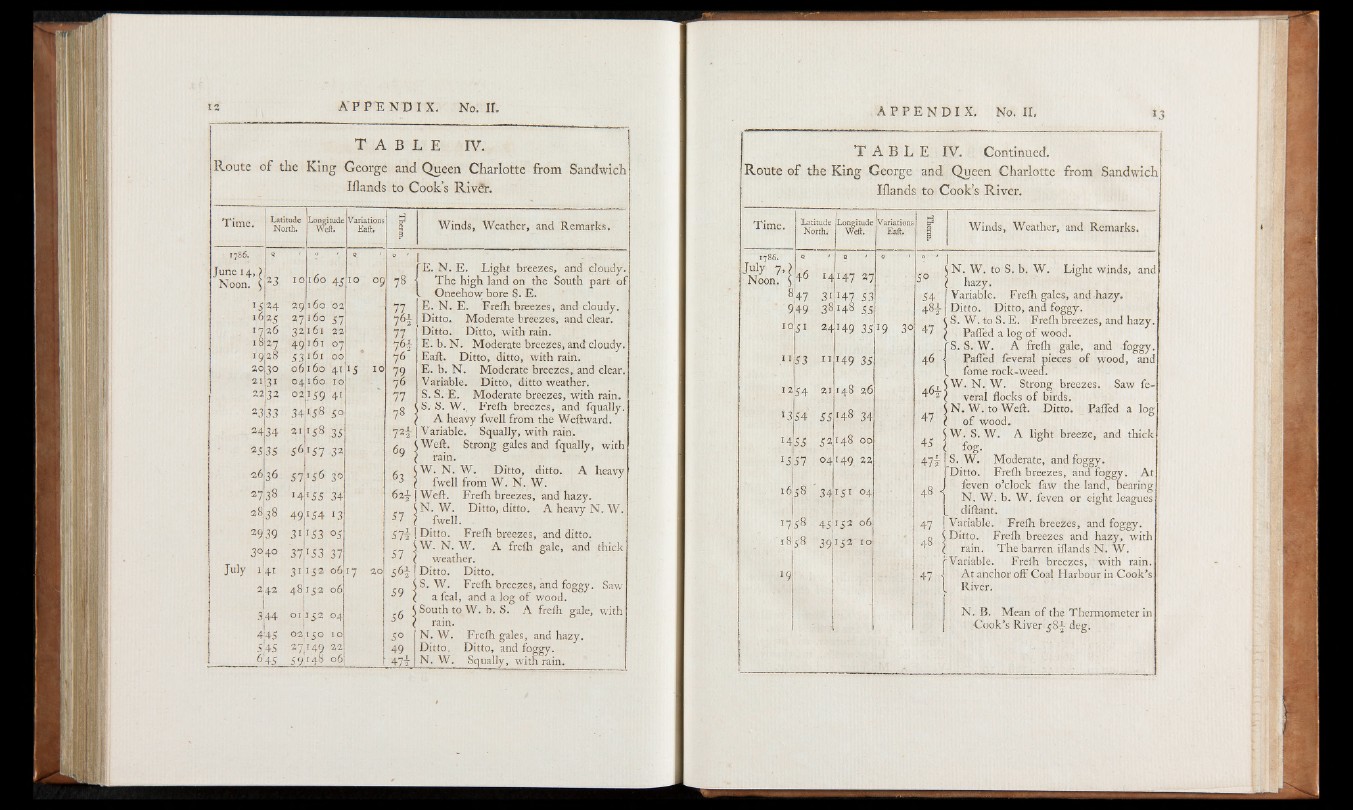 12 APPENDIX. No. II.
TABLE IV.
Route of the King George and Queen Charlotte from Sandwich
Iſlands to Cook's River.
Time. Latitude North. Longitude Weſt. Variations Eaſt. Therm. Winds, Weather, and Remarks.
1786. ° ' ° ' ° ' ° '
June 14, Noon. 23 10 160 45 10 09 78 E. N. E. Light breezes, and cloudy.
The high land on the South part of
Oneehow bore S. E.
15 24 29 160 02 77 E. N. E. Freſh breezes, and cloudy.
16 25 27 160 57 76½ Ditto. Moderate breezes, and clear.
17 26 32 161 22 77 Ditto. Ditto, with rain.
18 27 49 161 07 76½ E. b. N. Moderate breezes, and cloudy.
19 28 53 161 00 76 Eaſt. Ditto, ditto, with rain.
20 30 06 160 41 15 10 79 E. b. N. Moderate breezes, and clear.
21 31 04 160 10 76 Variable. Ditto, ditto weather.
22 32 02 159 41 77 S. S. E. Moderate breezes, with rain.
23 33 34 158 50 78 S. S. W. Freſh breezes, and ſqually.
A heavy ſwell from the Weſtward.
24 34 21 158 35 72½ Variable. Squally, with rain.
25 35 56 157 32 69 Weſt. Strong gales and ſqually, with
rain.
26 36 57 156 30 63 W. N. W. Ditto, ditto. A heavy
ſwell from W. N. W.
27 38 14 155 34 62½ Weſt. Freſh breezes, and hazy.
28 38 49 154 13 57 N. W. Ditto, ditto. A heavy N. W.
ſwell.
29 39 31 153 05 57½ Ditto. Freſh breezes, and ditto.
30 40 37 153 37 57 W. N. W. A freſh gale, and thick
weather.
July 1 41 31 152 06 17 20 56½ Ditto. Ditto.
2 42 48 152 06 59 S. W. Freſh breezes, and foggy. Saw
a ſeal, and a log of wood.
3 44 01 152 04 56 South to W. b. S. A freſh gale, with
rain.
4 45 02 150 10 50 N. W. Freſh gales, and hazy.
5 45 27 149 22 49 Ditto. Ditto, and foggy.
6 45 59 148 06 47½ N. W. Squally, with rain.
APPENDIX. No. II. 13
TABLE IV. Continued.
Route of the King George and Queen Charlotte from Sandwich
Iſlands to Cook's River.
Time. Latitude North. Longitude Weſt. Variations Eaſt. Therm. Winds, Weather, and Remarks.
1786. ° ' ° ' ° ' ° '
July 7, Noon. 46 14 147 27 50 N. W. to S. b. W. Light winds, and
hazy.
8 47 31 147 53 54 Variable. Freſh gales, and hazy.
9 49 38 148 55 48½ Ditto. Ditto, and foggy.
10 51 24 149 35 19 30 47 S. W. to S. E. Freſh breezes, and hazy.
Paſſed a log of wood.
11 53 11 149 35 46 S. S. W. A freſh gale, and foggy.
Paſſed ſeveral pieces of wood, and
ſome rock-weed.
12 54 21 148 26 46½ W. N. W. Strong breezes. Saw ſe-
veral flocks of birds.
13 54 55 148 34 47 N. W. to Weſt. Ditto. Paſſed a log
of wood.
14 55 52 148 00 45 W. S. W. A light breeze, and thick
fog.
15 57 04 149 22 47½ S. W. Moderate, and foggy.
16 58 34 151 04 48 Ditto. Freſh breezes, and foggy. At
ſeven o'clock ſaw the land, bearing
N. W. b. W. ſeven or eight leagues
diſtant.
17 58 45 152 06 47 Variable. Freſh breezes, and foggy.
18 58 39 152 10 48 Ditto. Freſh breezes and hazy, with
rain. The barren iſlands N. W.
19 47 Variable. Freſh breezes, with rain.
At anchor off Coal Harbour in Cook's
River.
N. B. Mean of the Thermometer in
Cook's River 58½ deg.